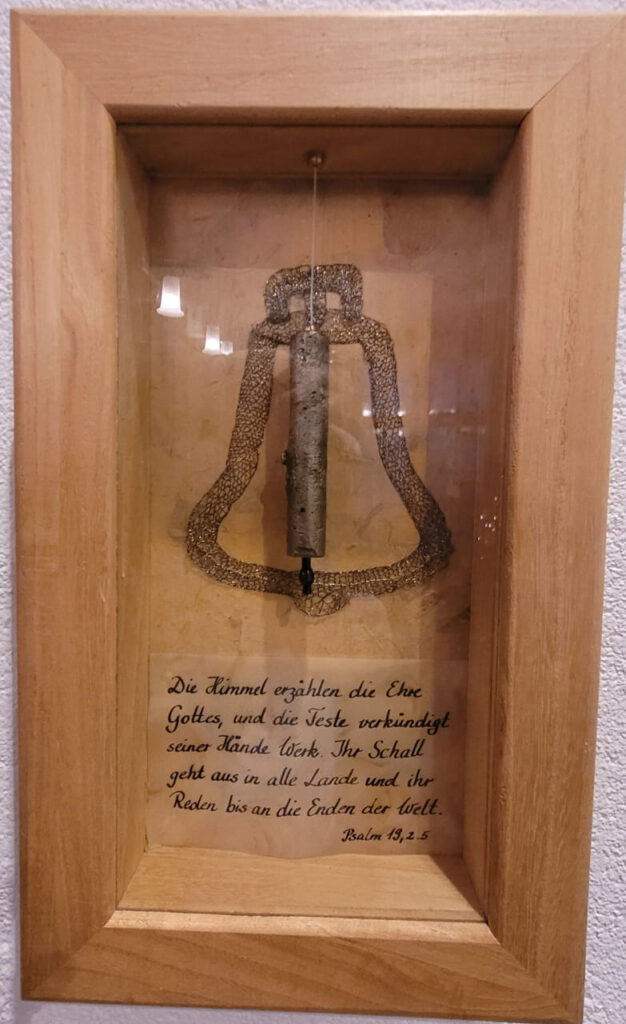 Die Himmel erzählen die Ehre
Gottes, und die Feste verkündigt
seiner Hände Werk. Ihr Schall
geht aus in alle Lande und ihr
Reden bis an die Enden der Welt.
Psalm 19,2.5